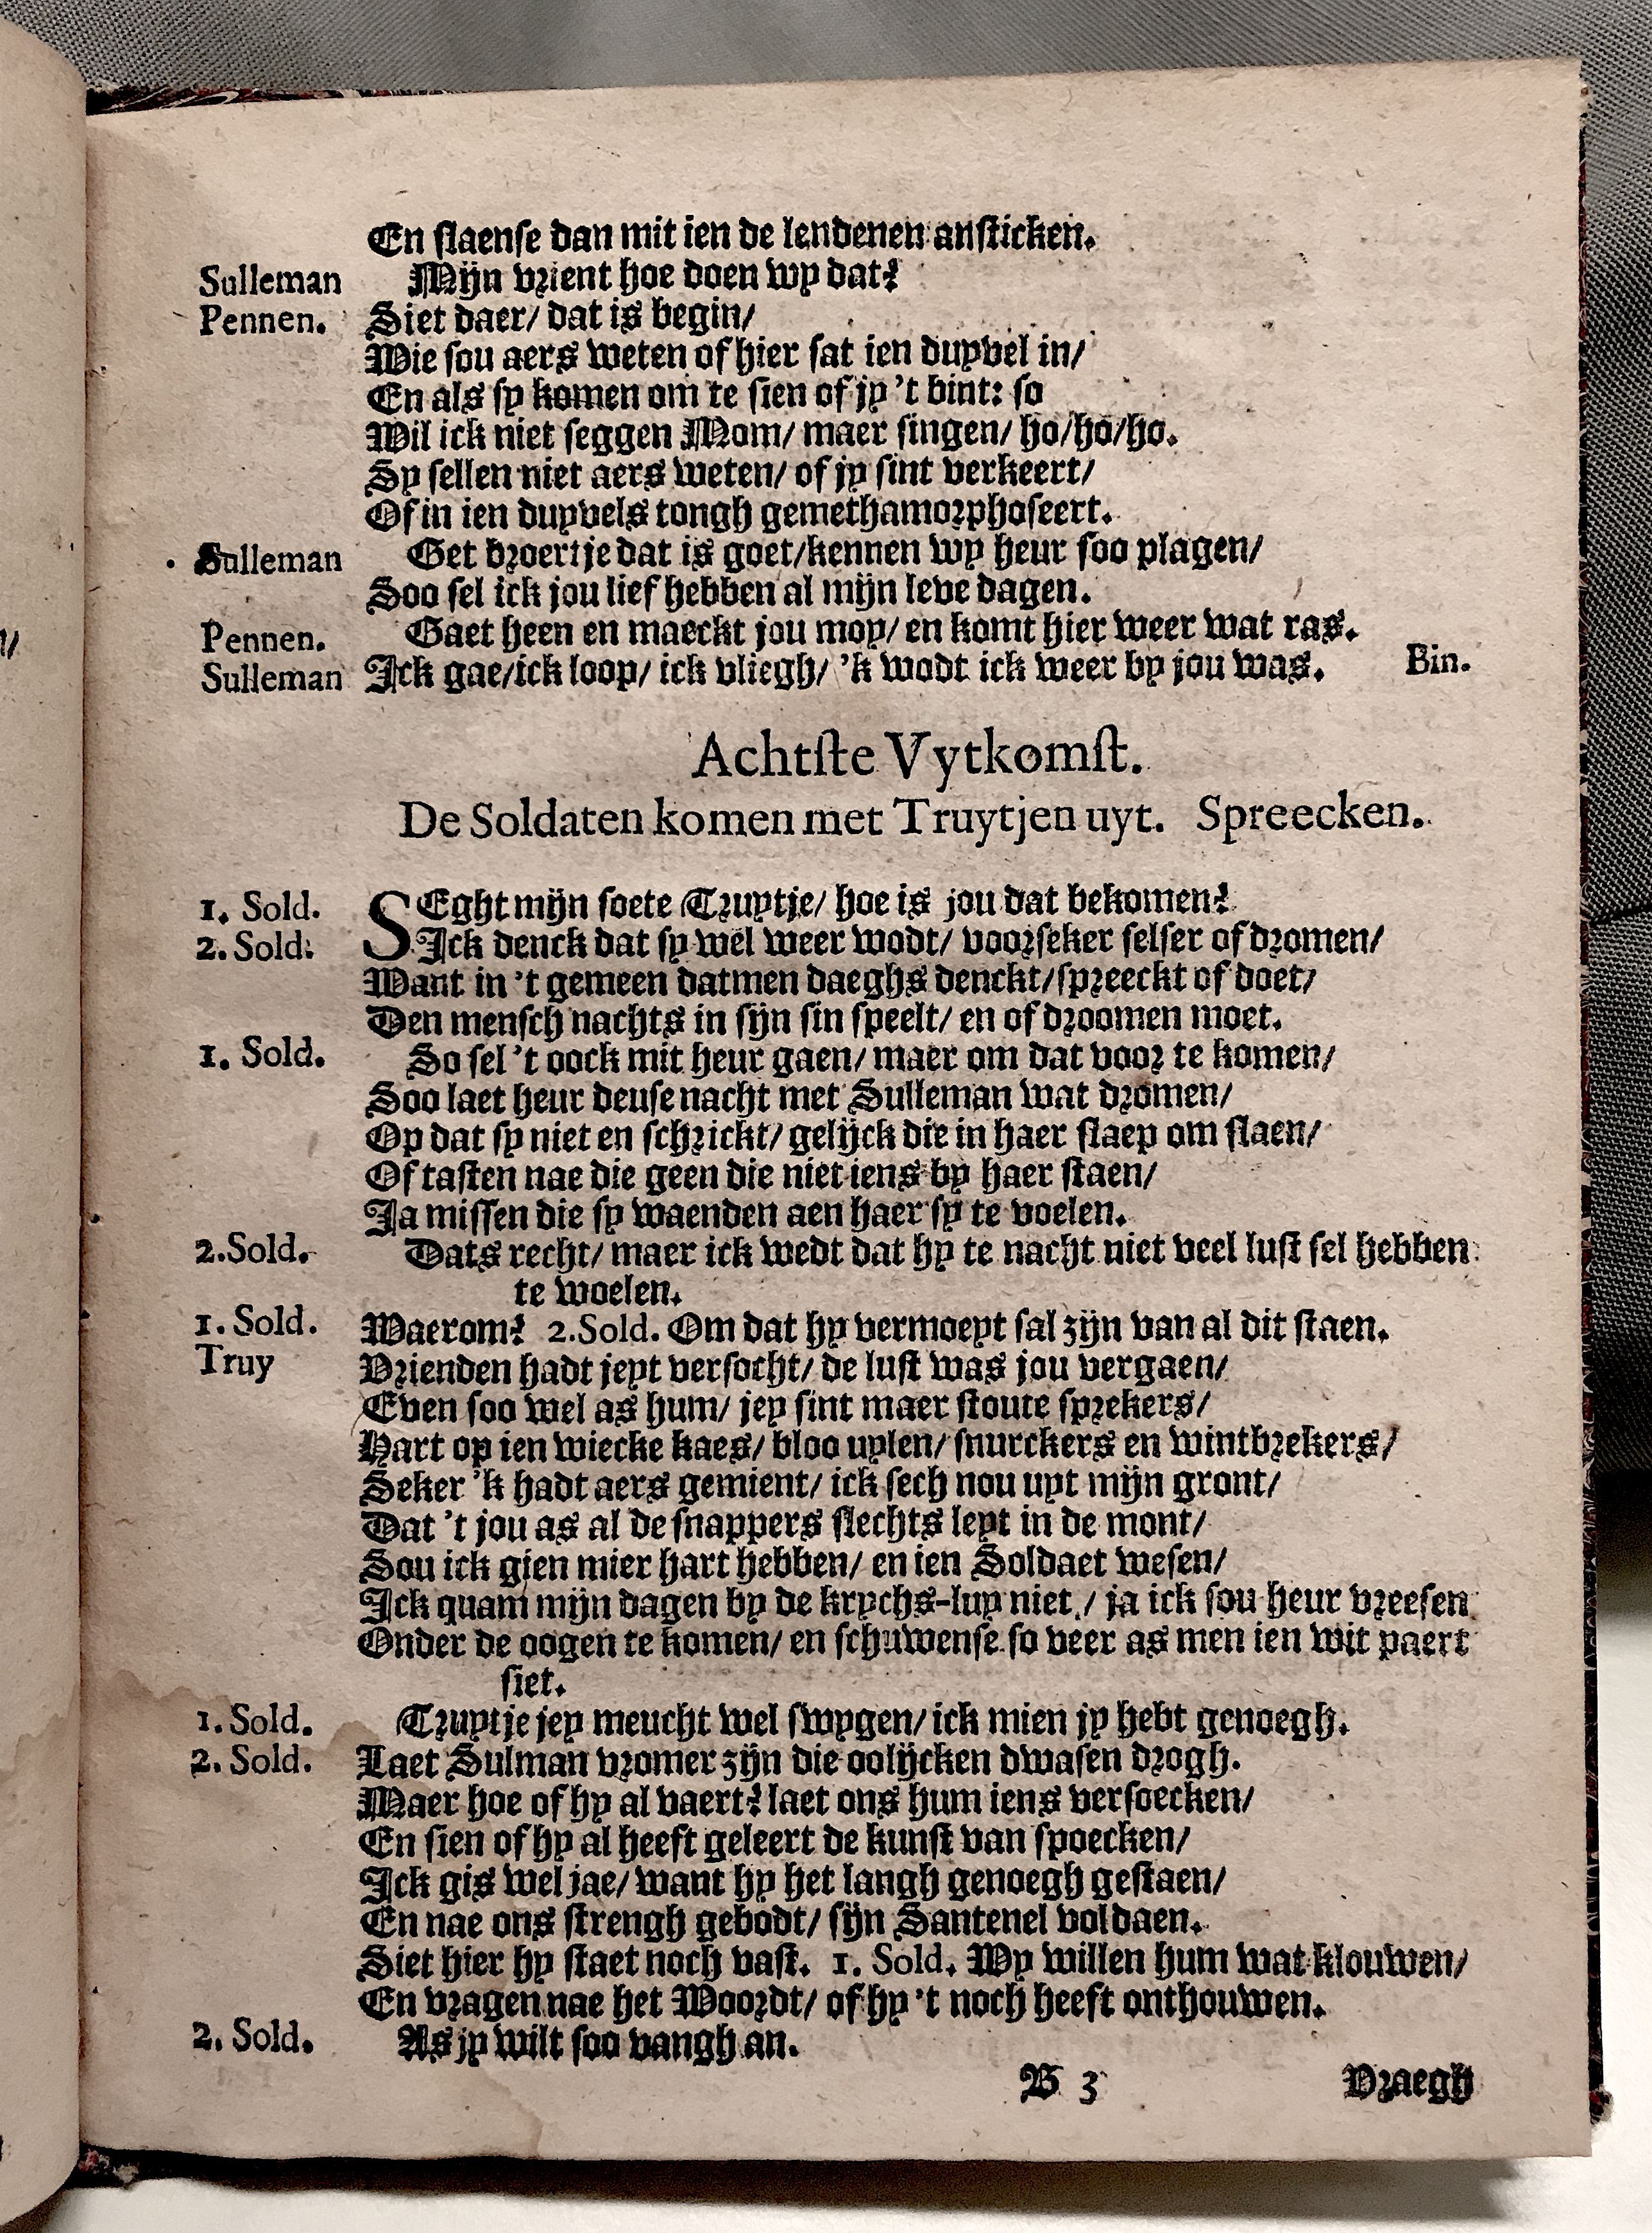 En slaense dan mit ien de lendenen ansticken.
Sulleman Mijn vrient hoe doen wy dat?
Pennen. Siet daer/ dat is begin/
Wie sou aers weten of hier sat ien duyvel in/
En als sy komen om te sien of jy 't bint: so
Wil ick niet seggen Mom/ maer singen/ ho/ho/ho.
Sy sellen niet aers weten/ of jy sint verkeert/
Of in ien duyvels tongh gemethamorphoseert.
Sulleman Get broertje dat is goet/kennen wy heur soo plagen/
Soo sel ick jou lief hebben al mijn leve dagen.
Pennen. Gaet heen en maeckt jou moy/ en komt hier weer wat ras.
Sulleman Ick gae/ick loop/ ick vliegh/ 'k wodt ick weer by jou was. Bin.
Achtste Vytkomst.
De Soldaten komen met Truytjen uyt. Spreecken.
1. Sold. SEght mijn soete Truytje/ hoe is jou dat bekomen?
2. Sold. Ick denck dat sy wel weer wodt/ voorseker selser of dromen/
Want in 't gemeen datmen daeghs denckt/spreeckt of doet/
Den mensch nachts in sijn sin speelt/ en of droomen moet.
1. Sold. So sel 't oock mit heur gaen/ maer om dat voor te komen/
Soo laet heur deuse nacht met Sulleman wat dromen/
Op dat sy niet en schrickt/ gelijck die in haer slaep om slaen/
Of tasten nae die geen die niet iens by haer staen/
Ja missen die sy waenden aen haer sy te voelen.
2.Sold. Dats recht/ maer ick wedt dat hy te nacht niet veel lust sel hebben
te woelen.
1. Sold. Waerom? 2.Sold. Om dat hy vermoeyt sal zijn van al dit staen.
Truy Vrienden hadt jeyt versocht/ de lust was jou vergaen/
Even soo wel as hum/ jey sint maer stoute sprekers/
Hart op ien wiecke kaes/ bloo uylen/ snurckers en wintbrekers/
Seker 'k hadt aers gemient/ ick sech nou uyt mijn gront/
Dat 't jou as al de snappers slechts leyt in de mont/
Sou ick gien mier hart hebben/ en ien Soldaet wesen/
Ick quam mijn dagen by de krychs-luy niet/ ja ick sou heur vreesen
Onder de oogen te komen/ en schuwense so veer as men ien wit paert
siet.
1. Sold. Truytje jey meucht wel swygen/ ick mien jy hebt genoegh.
2. Sold. Laet Sulman vromer zijn die oolijcken dwasen drogh.
Maer hoe of hy al vaert? laet ons hum iens versoecken/
En sien of hy al heeft geleert de kunst van spoecken/
Ick gis wel jae/ want hy het langh genoegh gestaen/
En nae ons strengh gebodt/ sijn Santenel voldaen.
Siet hier hy staet noch vast. 1. Sold. Wy willen hum wat klouwen/
En vragen nae het Woordt/ of hy 't noch heeft onthouwen.
2. Sold. As jy wilt soo vangh an.
B 3 Vraegh